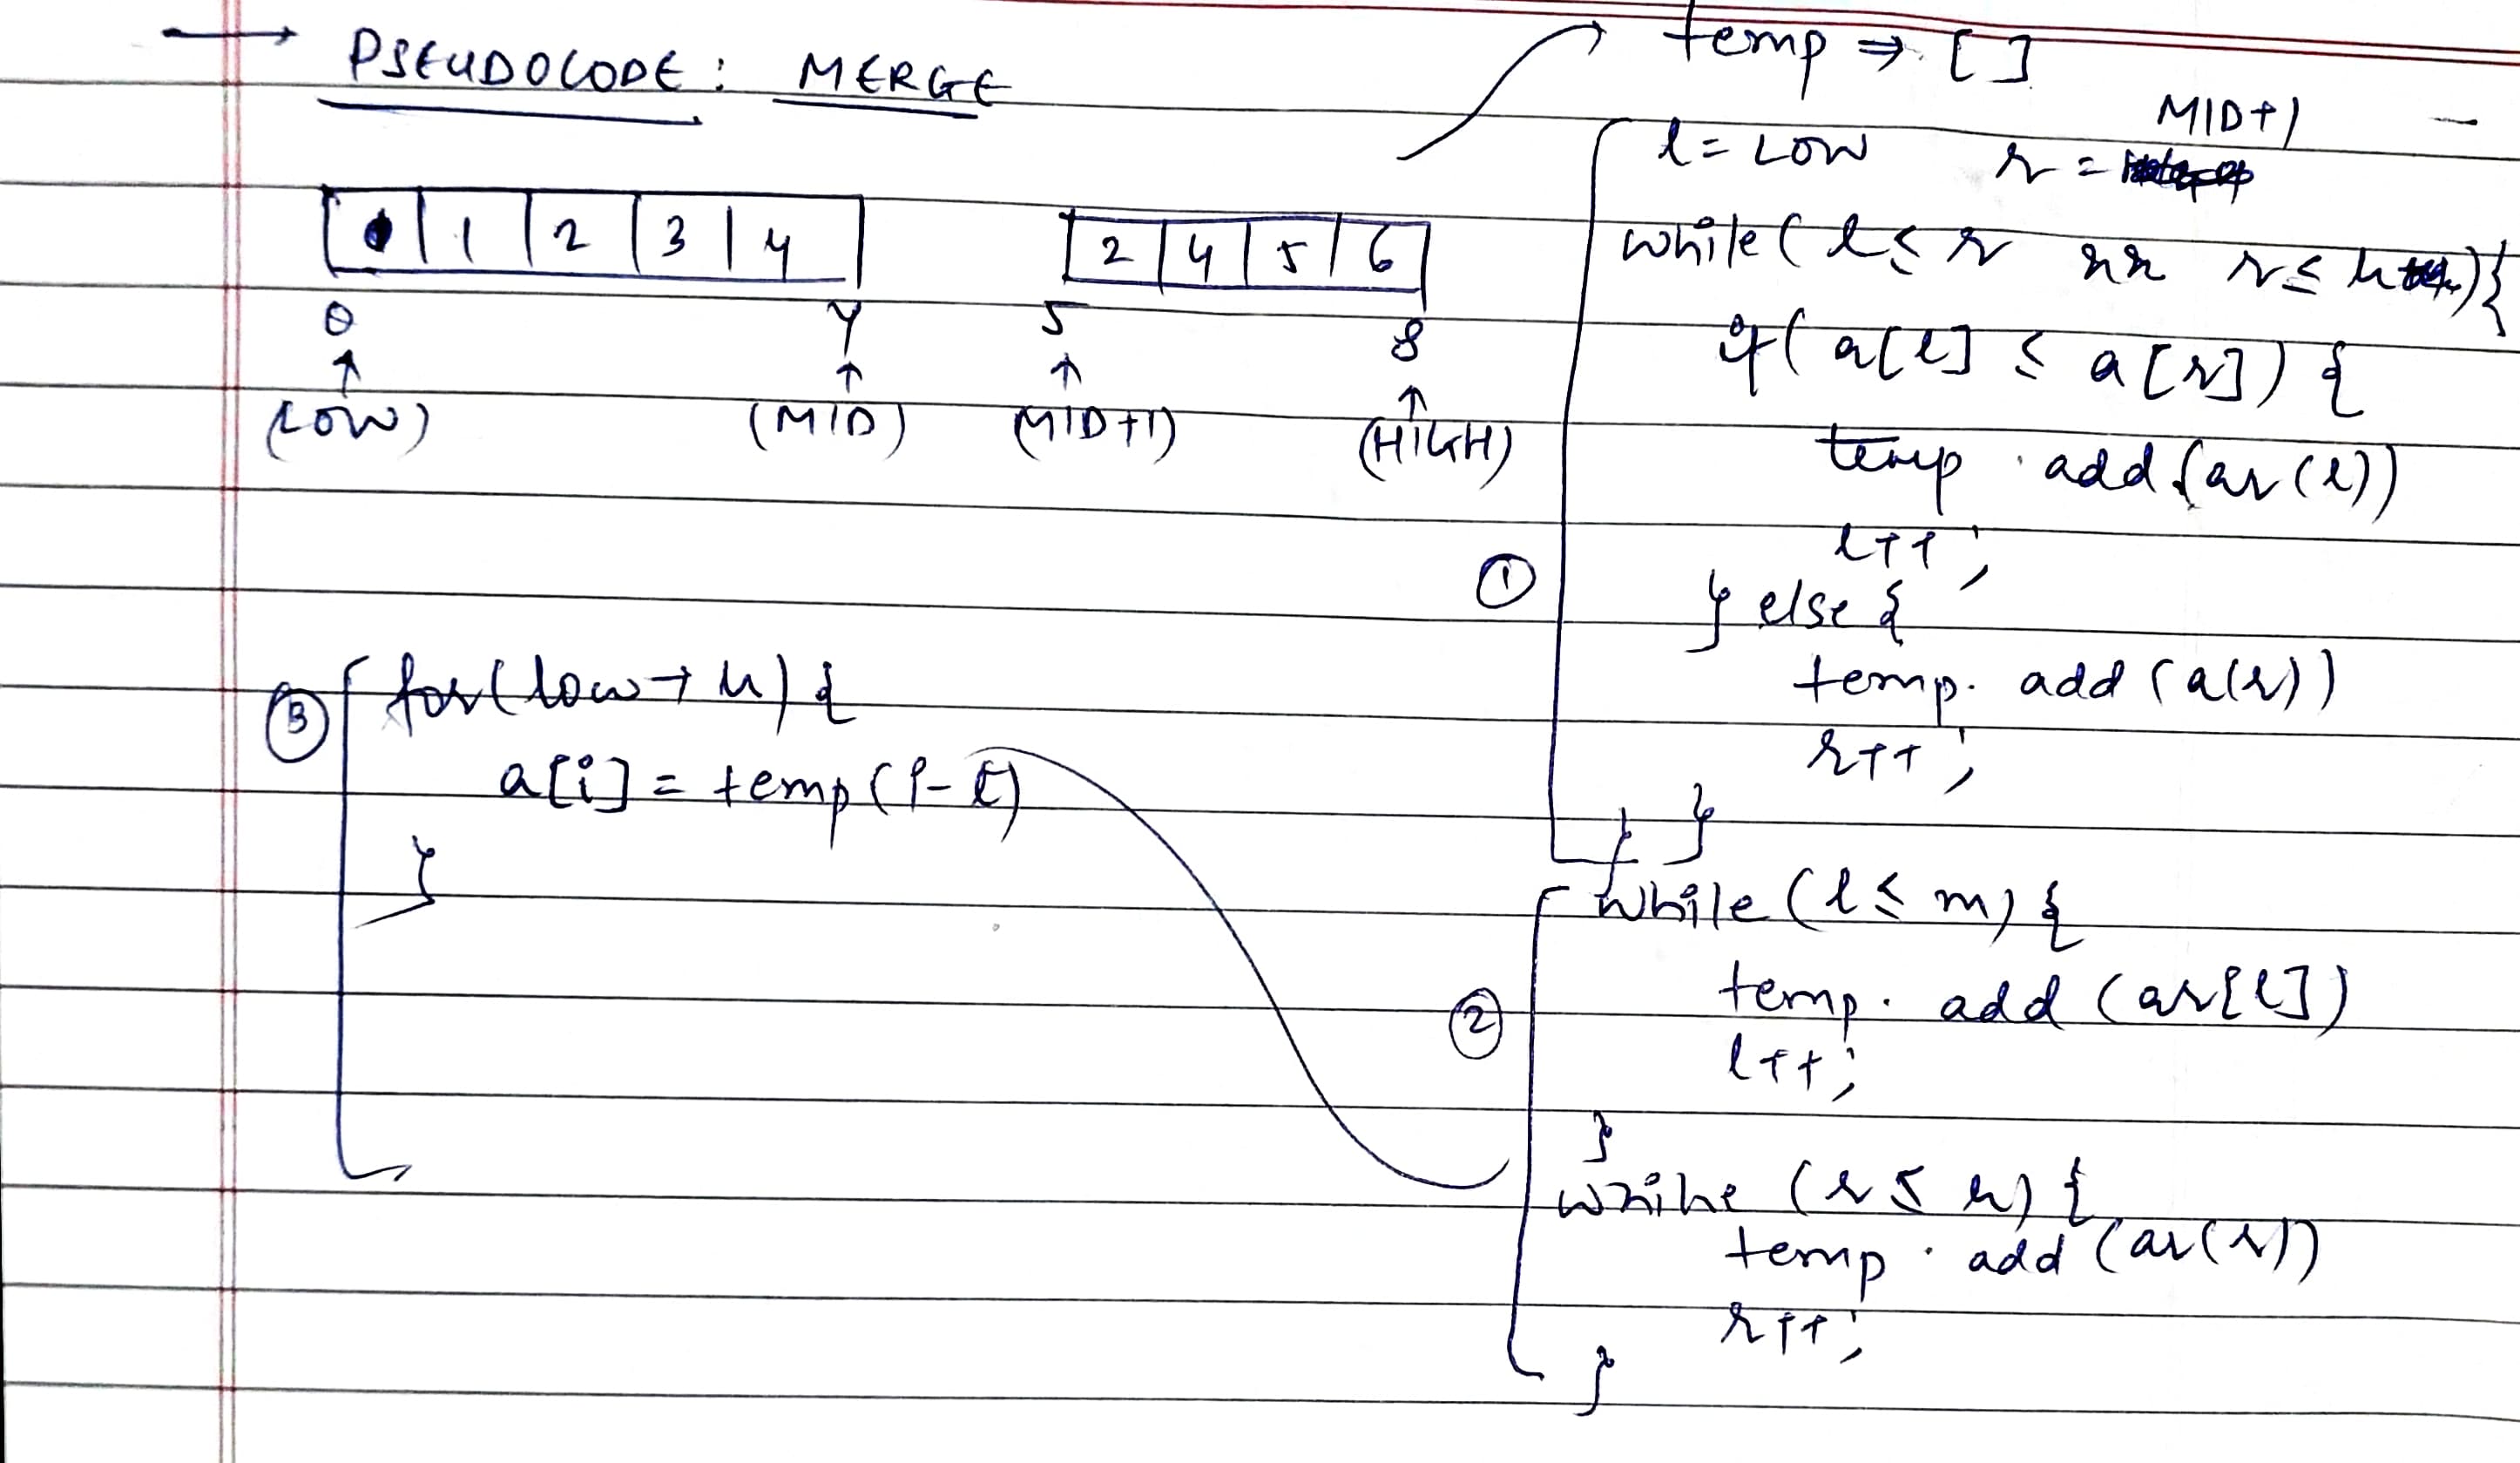 → PSEUDOCODE: MERGE
1 2 3 4
2 4 5 6
0 4 5 8
↑ ↑ ↑ ↑
(LOW) (MID) (MID+1) (HIGH)
temp ⇒ []
MID+1
l = LOW r =
while( l ≤ r && r ≤ h ){
if( a[l] ≤ a[r]) {
temp . add (ar(l))
l++;
① } else {
temp. add (a(r))
r++;
}
}
while (l ≤ m) {
② temp. add (ar[l])
l++;
}
while (r ≤ h) {
temp . add (ar(r))
r++;
}
③ for(low → h) {
a[i] = temp(i-l)
}